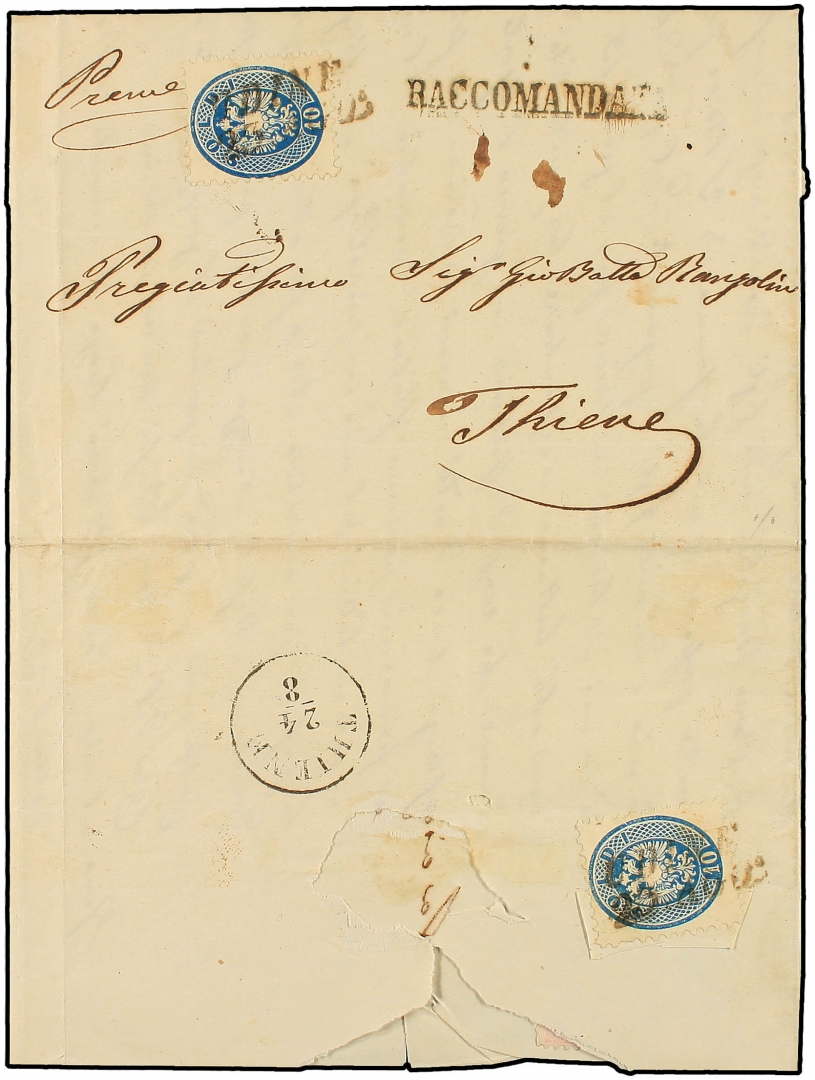 Preme
RACCOMANDATA
SOLDI 10
Pregiatissimo Sigr. Gio Batta Ranzolin
Thiene
THIENE
24
8
SOLDI 10